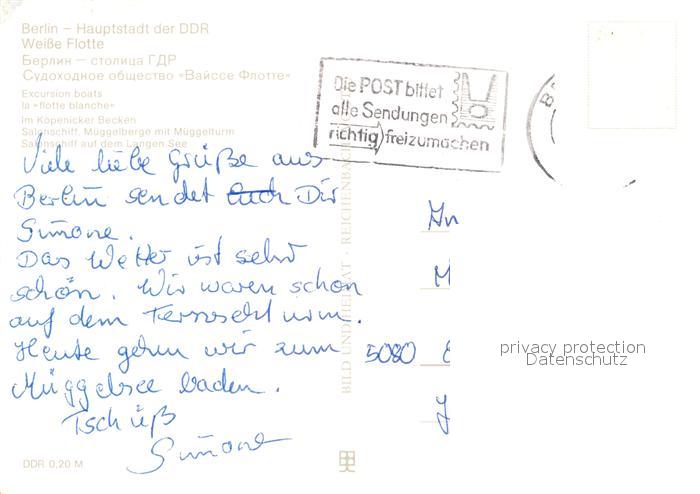 Berlin – Hauptstadt der DDR
Weiße Flotte
Берлин – столица ГДР
Судоходное общество «Вайссе Флотте»
Excursion boats
la »flotte blanche«
Im Köpenicker Becken
Salonschiff, Müggelberge mit Müggelturm
Salonschiff auf dem Langen See
Die POST bittet
alle Sendungen
richtig freizumachen
Viele liebe Grüße aus
Berlin sendet Euch Dir
Simone.
Das Wetter ist sehr
schön. Wir waren schon
auf dem Fernsehturm.
Heute gehen wir zum
Müggelsee baden.
Tschüß
Simone
5080
BILD UND HEIMAT · REICHENBACH
privacy protection
Datenschutz
DDR 0,20 M